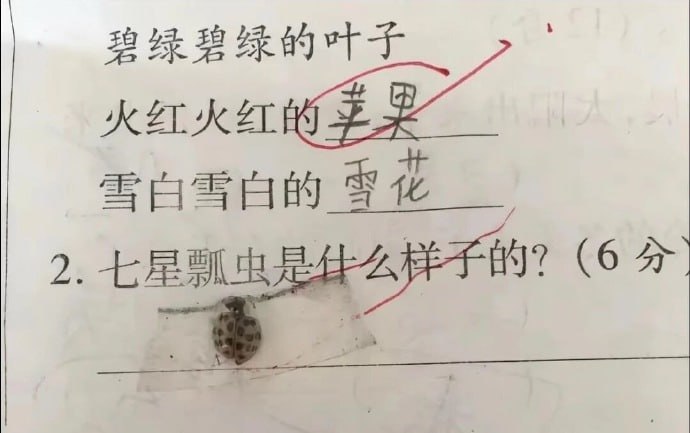 碧绿碧绿的叶子
火红火红的苹果
雪白雪白的雪花
2. 七星瓢虫是什么样子的?（6 分）